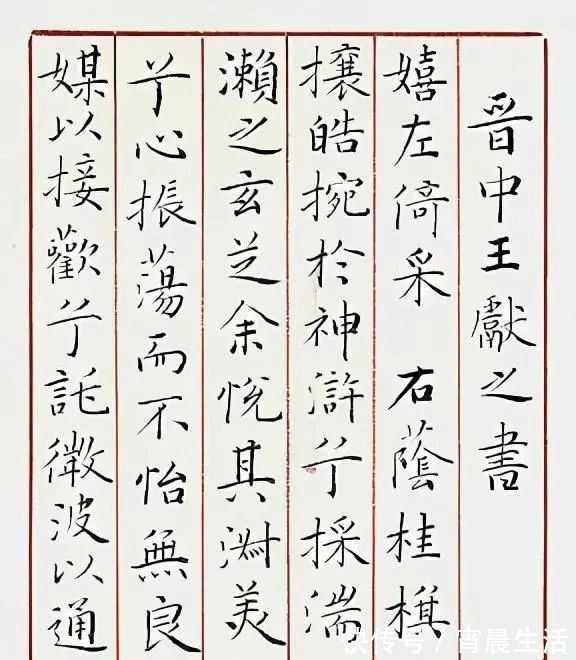 晉中王獻之書
嬉左倚采 右蔭桂旗
攘皓捥於神滸兮採湍
瀨之玄芝余悅其淑美
兮心振蕩而不怡無良
媒以接歡兮託微波以通
快传号/宵晨生活